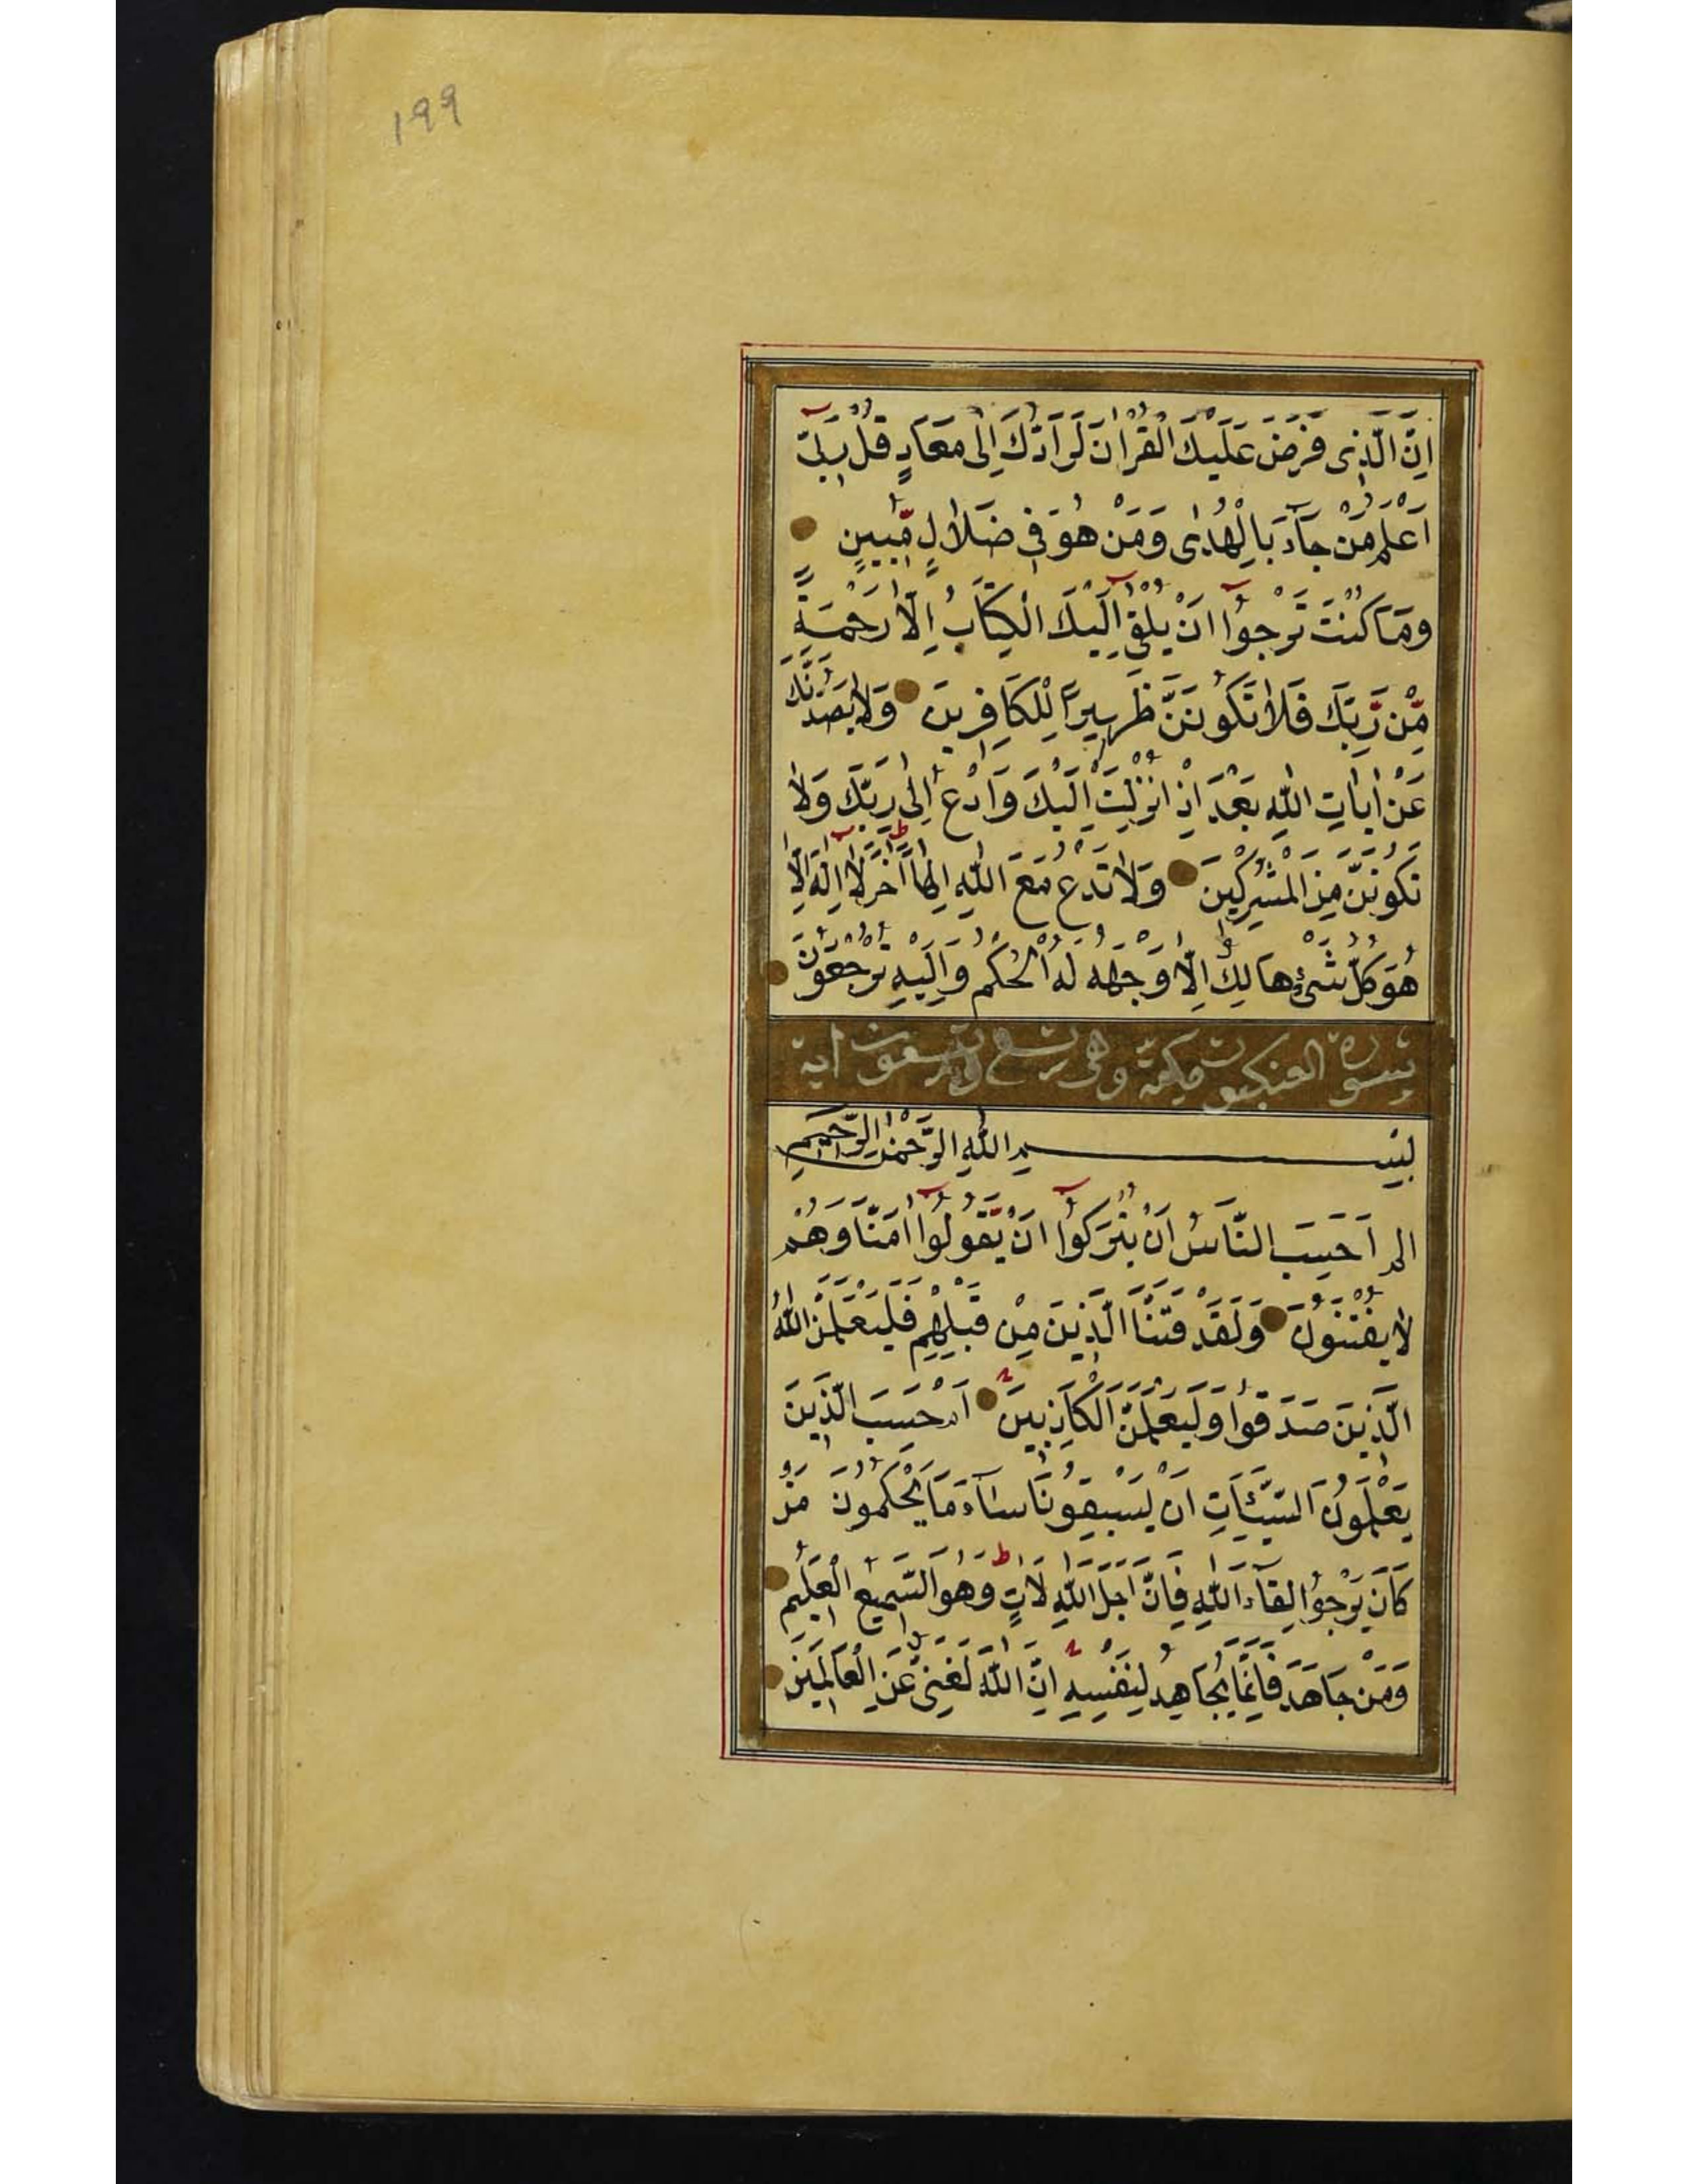 ١٩٩
اِنَّ الَّذِى فَرَضَ عَلَيْكَ الْقُرْاٰنَ لَرَآدُّكَ اِلٰى مَعَادٍ قُلْ رَبِّىٓ
اَعْلَمُ مَنْ جَآءَ بِالْهُدٰى وَمَنْ هُوَ فِى ضَلَالٍ مُّبِيْنٍ
وَمَا كُنْتَ تَرْجُوْٓا اَنْ يُلْقٰٓى اِلَيْكَ الْكِتَابُ اِلَّا رَحْمَةً
مِّنْ رَّبِّكَ فَلَا تَكُوْنَنَّ ظَهِيرًا لِّلْكَافِرِينَ وَلَا يَصُدُّنَّكَ
عَنْ اٰيَاتِ اللّٰهِ بَعْدَ اِذْ اُنْزِلَتْ اِلَيْكَ وَادْعُ اِلٰى رَبِّكَ وَلَا
تَكُوْنَنَّ مِنَ الْمُشْرِكِينَ وَلَا تَدْعُ مَعَ اللّٰهِ اِلٰهًا اٰخَرَ لَآ اِلٰهَ اِلَّا
هُوَ كُلُّ شَىْءٍ هَالِكٌ اِلَّا وَجْهَهُ لَهُ الْحُكْمُ وَاِلَيْهِ تُرْجَعُوْنَ
سورة العنكبوت مكية وهى تسع وستون اية
بِسْمِ اللّٰهِ الرَّحْمٰنِ الرَّحِيمِ
الم اَحَسِبَ النَّاسُ اَنْ يُتْرَكُوْٓا اَنْ يَّقُوْلُوْٓا اٰمَنَّا وَهُمْ
لَا يُفْتَنُوْنَ وَلَقَدْ فَتَنَّا الَّذِينَ مِنْ قَبْلِهِمْ فَلَيَعْلَمَنَّ اللّٰهُ
الَّذِينَ صَدَقُوْا وَلَيَعْلَمَنَّ الْكَاذِبِينَ اَمْ حَسِبَ الَّذِينَ
يَعْمَلُوْنَ السَّيِّئَاتِ اَنْ يَسْبِقُوْنَا سَآءَ مَا يَحْكُمُوْنَ مَنْ
كَانَ يَرْجُوْا لِقَآءَ اللّٰهِ فَاِنَّ اَجَلَ اللّٰهِ لَاٰتٍ وَهُوَ السَّمِيْعُ الْعَلِيْمُ
وَمَنْ جَاهَدَ فَاِنَّمَا يُجَاهِدُ لِنَفْسِهِ اِنَّ اللّٰهَ لَغَنِىٌّ عَنِ الْعَالَمِينَ